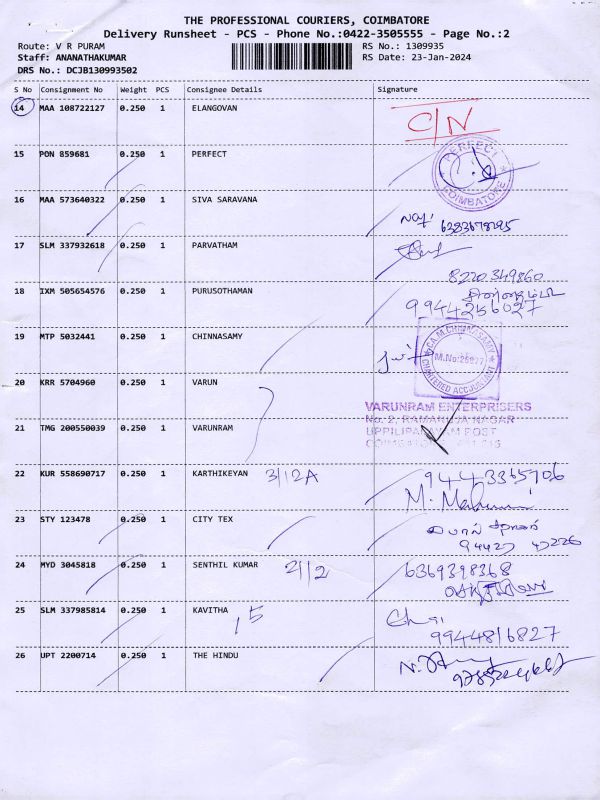 THE PROFESSIONAL COURIERS, COIMBATORE
Delivery Runsheet - PCS - Phone No.:0422-3505555 - Page No.:2
Route: V R PURAM
RS No.: 1309935
Staff: ANANATHAKUMAR
RS Date: 23-Jan-2024
DRS No.: DCJB130993502
S No Consignment No Weight PCS Consignee Details Signature
14 MAA 108722127 0.250 1 ELANGOVAN C/N
15 PON 859681 0.250 1 PERFECT
PERFECT COIMBATORE
16 MAA 573640322 0.250 1 SIVA SARAVANA
17 SLM 337932618 0.250 1 PARVATHAM
8220349860
18 IXM 505654576 0.250 1 PURUSOTHAMAN
9944256027
19 MTP 5032441 0.250 1 CHINNASAMY
CA.M.CHINNASAMY
M.No:25977
CHARTERED ACCOUNTANT
20 KRR 5704960 0.250 1 VARUN
VARUNRAM ENTERPRISERS
No. 2, RAMANUJA NAGAR
21 TMG 200550039 0.250 1 VARUNRAM
UPPILIPALAYAM POST
22 KUR 558690717 0.250 1 KARTHIKEYAN 3/12A
9443365706
23 STY 123478 0.250 1 CITY TEX
94427 47226
24 MYD 3045818 0.250 1 SENTHIL KUMAR 2/12 6369398368
25 SLM 337985814 0.250 1 KAVITHA 15
9944816827
26 UPT 2200714 0.250 1 THE HINDU